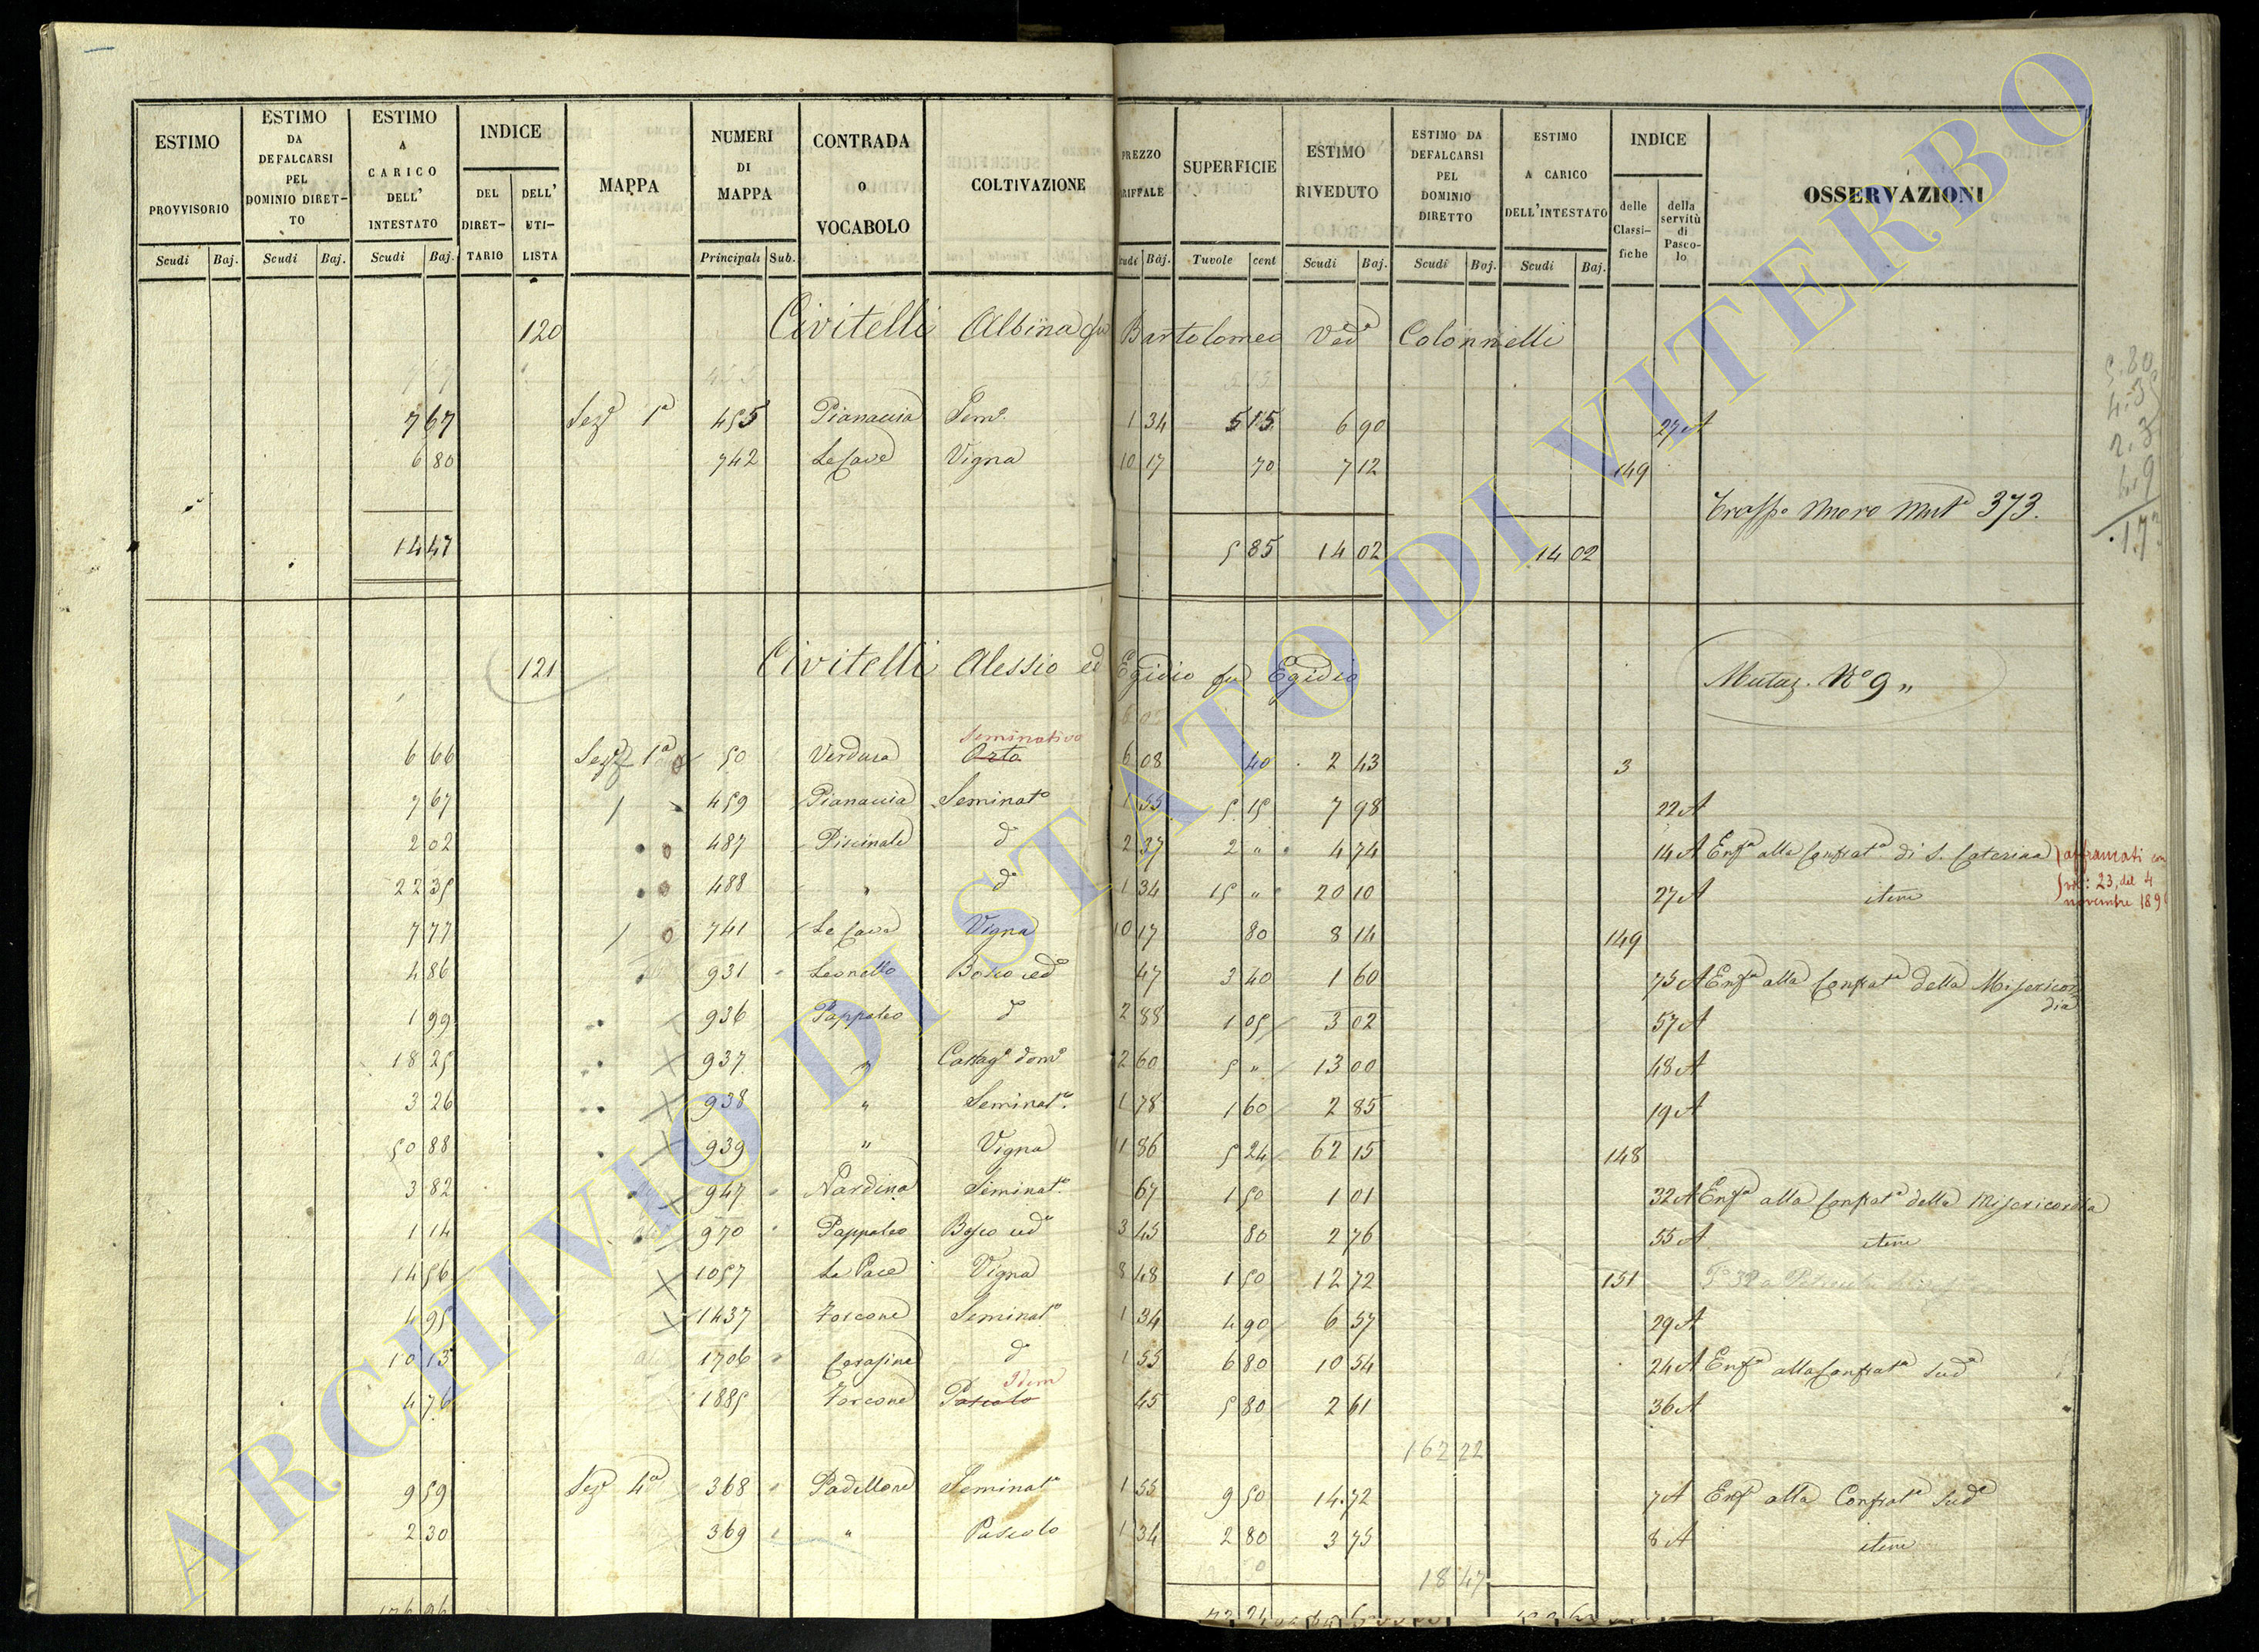 ESTIMO PROVVISORIO Scudi Baj.
ESTIMO DA DEFALCARSI PEL DOMINIO DIRETTO Scudi Baj.
ESTIMO A CARICO DELL' INTESTATO Scudi Baj.
INDICE DEL DIRETTARIO DELL' UTILISTA
MAPPA
NUMERI DI MAPPA Principali Sub.
CONTRADA o VOCABOLO
COLTIVAZIONE
PREZZO RIFFALE Scudi Baj.
SUPERFICIE Tuvole cent
ESTIMO RIVEDUTO Scudi Baj.
ESTIMO DA DEFALCARSI PEL DOMINIO DIRETTO Scudi Baj.
ESTIMO A CARICO DELL'INTESTATO Scudi Baj.
INDICE delle Classifiche della servitù di Pascolo
OSSERVAZIONI
120 Civitelli Albina fu Bartolomeo Ved.a Colonnelli
7 67 Sez.e 1a 455 Pianaccia Sem.o 1 34 5 15 6 90 27 A
6 80 742 Le Cave Vigna 10 17 70 7 12 149
Trasp.o Mut.a 373.
14 47 5 85 14 02 14 02
121 Civitelli Alessio ed Egidio fu Egidio
Mutaz. No 9 "
Seminativo
6 66 Sez.e 1a 50 Verdura Orto 6 08 40 2 43 3
7 67 459 Pianaccia Seminat.o 1 55 5 15 7 98 22 A
2 02 487 Piscinale d.o 2 37 2 " 4 74 14 A Enf.a alla Confrat.a di S. Caterina affrancati con
22 35 488 " d.o 1 34 15 " 20 10 27 A item vol: 23, del 4 novembre 189
7 77 741 Le Cave Vigna 10 17 80 8 14 149
4 86 931 Leonetto Bosco ced.o 47 3 40 1 60 75 A Enf.a alla Confrat.a della Misericordia
1 99 936 Pappaleo d.o 2 88 1 05 3 02 57 A
18 25 937 " Castag.o dom.o 2 60 5 " 13 00 48 A
3 26 938 " Seminat.o 1 78 1 60 2 85 19 A
50 88 939 " Vigna 11 86 5 24 62 15 148
3 82 947 Nardina Siminat.o 67 1 50 1 01 32 A Enf.a alla Confrat.a della Misericordia
1 14 970 Pappaleo Bosco ced.o 3 45 80 2 76 55 A item
14 56 1057 La Pace Vigna 8 48 1 50 12 72 151
4 95 1437 Forcone Seminat.o 1 34 4 90 6 57 29 A
10 13 1706 Cerasine d.o 1 55 6 80 10 54 24 A Enf.a alla Confrat.a sud.a
Idem
4 76 1885 Forcone Pascolo 45 5 80 2 61 36 A
162 22
9 59 Sez.e 4a 368 Padellone Seminat.o 1 55 9 50 14.72 7 A Enf.a alla Confrat.a sud.a
2 30 369 " Pascolo 1 34 2 80 3 75 8 A item
18 47
ARCHIVIO DI STATO DI VITERBO